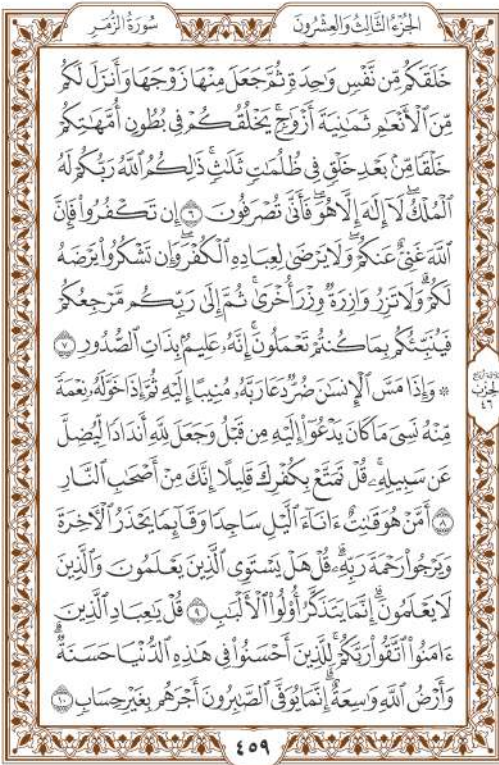 الجُزْءُ الثَّالِثُ وَالعِشْرُونَ
سُورَةُ الزُّمَرِ
خَلَقَكُم مِّن نَّفْسٍ وَٰحِدَةٍ ثُمَّ جَعَلَ مِنْهَا زَوْجَهَا وَأَنزَلَ لَكُم
مِّنَ ٱلْأَنْعَٰمِ ثَمَٰنِيَةَ أَزْوَٰجٍۚ يَخْلُقُكُمْ فِي بُطُونِ أُمَّهَٰتِكُمْ
خَلْقًا مِّنۢ بَعْدِ خَلْقٍ فِي ظُلُمَٰتٍ ثَلَٰثٍۚ ذَٰلِكُمُ ٱللَّهُ رَبُّكُمْ لَهُ
ٱلْمُلْكُۖ لَآ إِلَٰهَ إِلَّا هُوَۖ فَأَنَّىٰ تُصْرَفُونَ ٦ إِن تَكْفُرُوا۟ فَإِنَّ
ٱللَّهَ غَنِيٌّ عَنكُمْۖ وَلَا يَرْضَىٰ لِعِبَادِهِ ٱلْكُفْرَۖ وَإِن تَشْكُرُوا۟ يَرْضَهُ
لَكُمْۗ وَلَا تَزِرُ وَازِرَةٌ وِزْرَ أُخْرَىٰۚ ثُمَّ إِلَىٰ رَبِّكُم مَّرْجِعُكُمْ
فَيُنَبِّئُكُم بِمَا كُنتُمْ تَعْمَلُونَۚ إِنَّهُۥ عَلِيمٌۢ بِذَاتِ ٱلصُّدُورِ ٧
۞ وَإِذَا مَسَّ ٱلْإِنسَٰنَ ضُرٌّ دَعَا رَبَّهُۥ مُنِيبًا إِلَيْهِ ثُمَّ إِذَا خَوَّلَهُۥ نِعْمَةً
مِّنْهُ نَسِيَ مَا كَانَ يَدْعُوٓا۟ إِلَيْهِ مِن قَبْلُ وَجَعَلَ لِلَّهِ أَندَادًا لِّيُضِلَّ
عَن سَبِيلِهِۦۚ قُلْ تَمَتَّعْ بِكُفْرِكَ قَلِيلًا إِنَّكَ مِنْ أَصْحَٰبِ ٱلنَّارِ
٨ أَمَّنْ هُوَ قَٰنِتٌ ءَانَآءَ ٱلَّيْلِ سَاجِدًا وَقَآئِمًا يَحْذَرُ ٱلْءَاخِرَةَ
وَيَرْجُوا۟ رَحْمَةَ رَبِّهِۦۗ قُلْ هَلْ يَسْتَوِي ٱلَّذِينَ يَعْلَمُونَ وَٱلَّذِينَ
لَا يَعْلَمُونَۗ إِنَّمَا يَتَذَكَّرُ أُو۟لُوا۟ ٱلْأَلْبَٰبِ ٩ قُلْ يَٰعِبَادِ ٱلَّذِينَ
ءَامَنُوا۟ ٱتَّقُوا۟ رَبَّكُمْۚ لِلَّذِينَ أَحْسَنُوا۟ فِي هَٰذِهِ ٱلدُّنْيَا حَسَنَةٌۗ
وَأَرْضُ ٱللَّهِ وَٰسِعَةٌۗ إِنَّمَا يُوَفَّى ٱلصَّٰبِرُونَ أَجْرَهُم بِغَيْرِ حِسَابٍ ١٠
الحِزْب
٤٦
٤٥٩